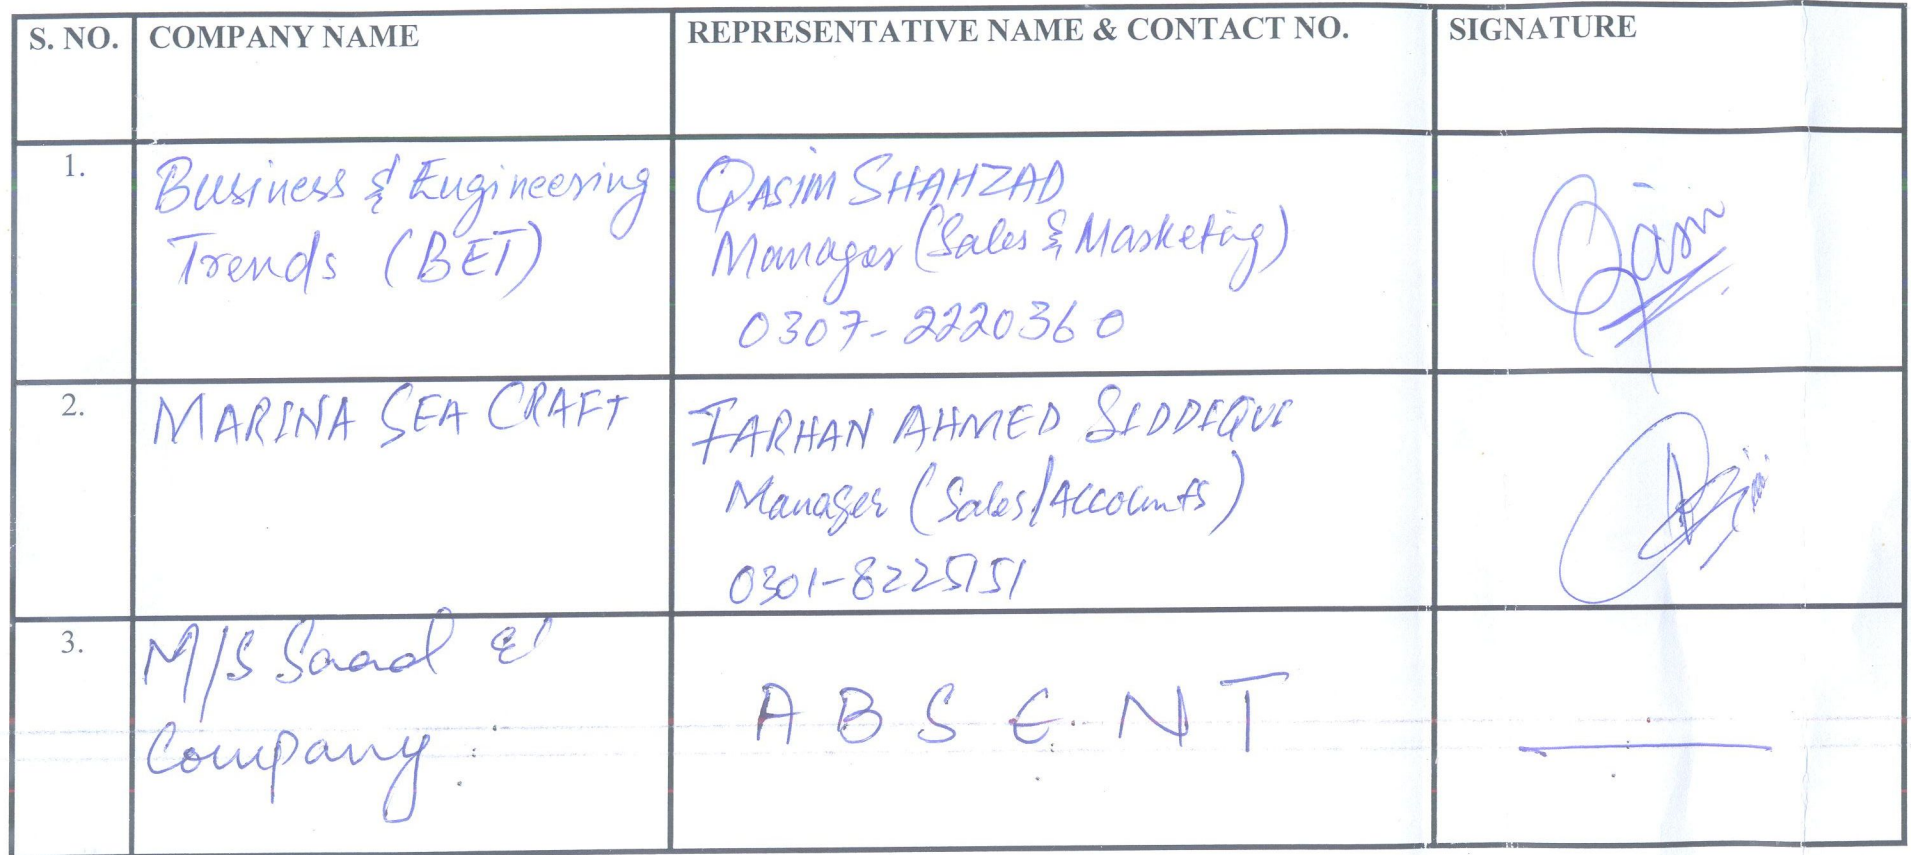 S. NO. COMPANY NAME REPRESENTATIVE NAME & CONTACT NO. SIGNATURE
1.
Business & Engineering
Trends (BET)
QASIM SHAHZAD
Manager (Sales & Marketing)
0307-2220360
Qasim
2.
MARINA SEA CRAFT
FARHAN AHMED SIDDIQUI
Manager (Sales/Accounts)
0301-8225151
3.
M/S Saad &
Company
ABSENT